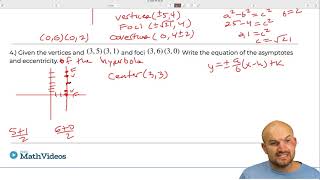 vertices (±5,4)
Foci (±√21)
covertices (0,4±2)
(0,6)(0,2)
a²-b²=c²
b=2
25-4=c²
21=c²
c=√21
4.) Given the vertices and (3,5)(3,1) and foci (3,6)(3,0) Write the equation of the asymptotes
and eccentricity. of the hyperbola
center (3,3)
y=±a/b(x-h)+k
5+1/2
6+0/2
MathVideos